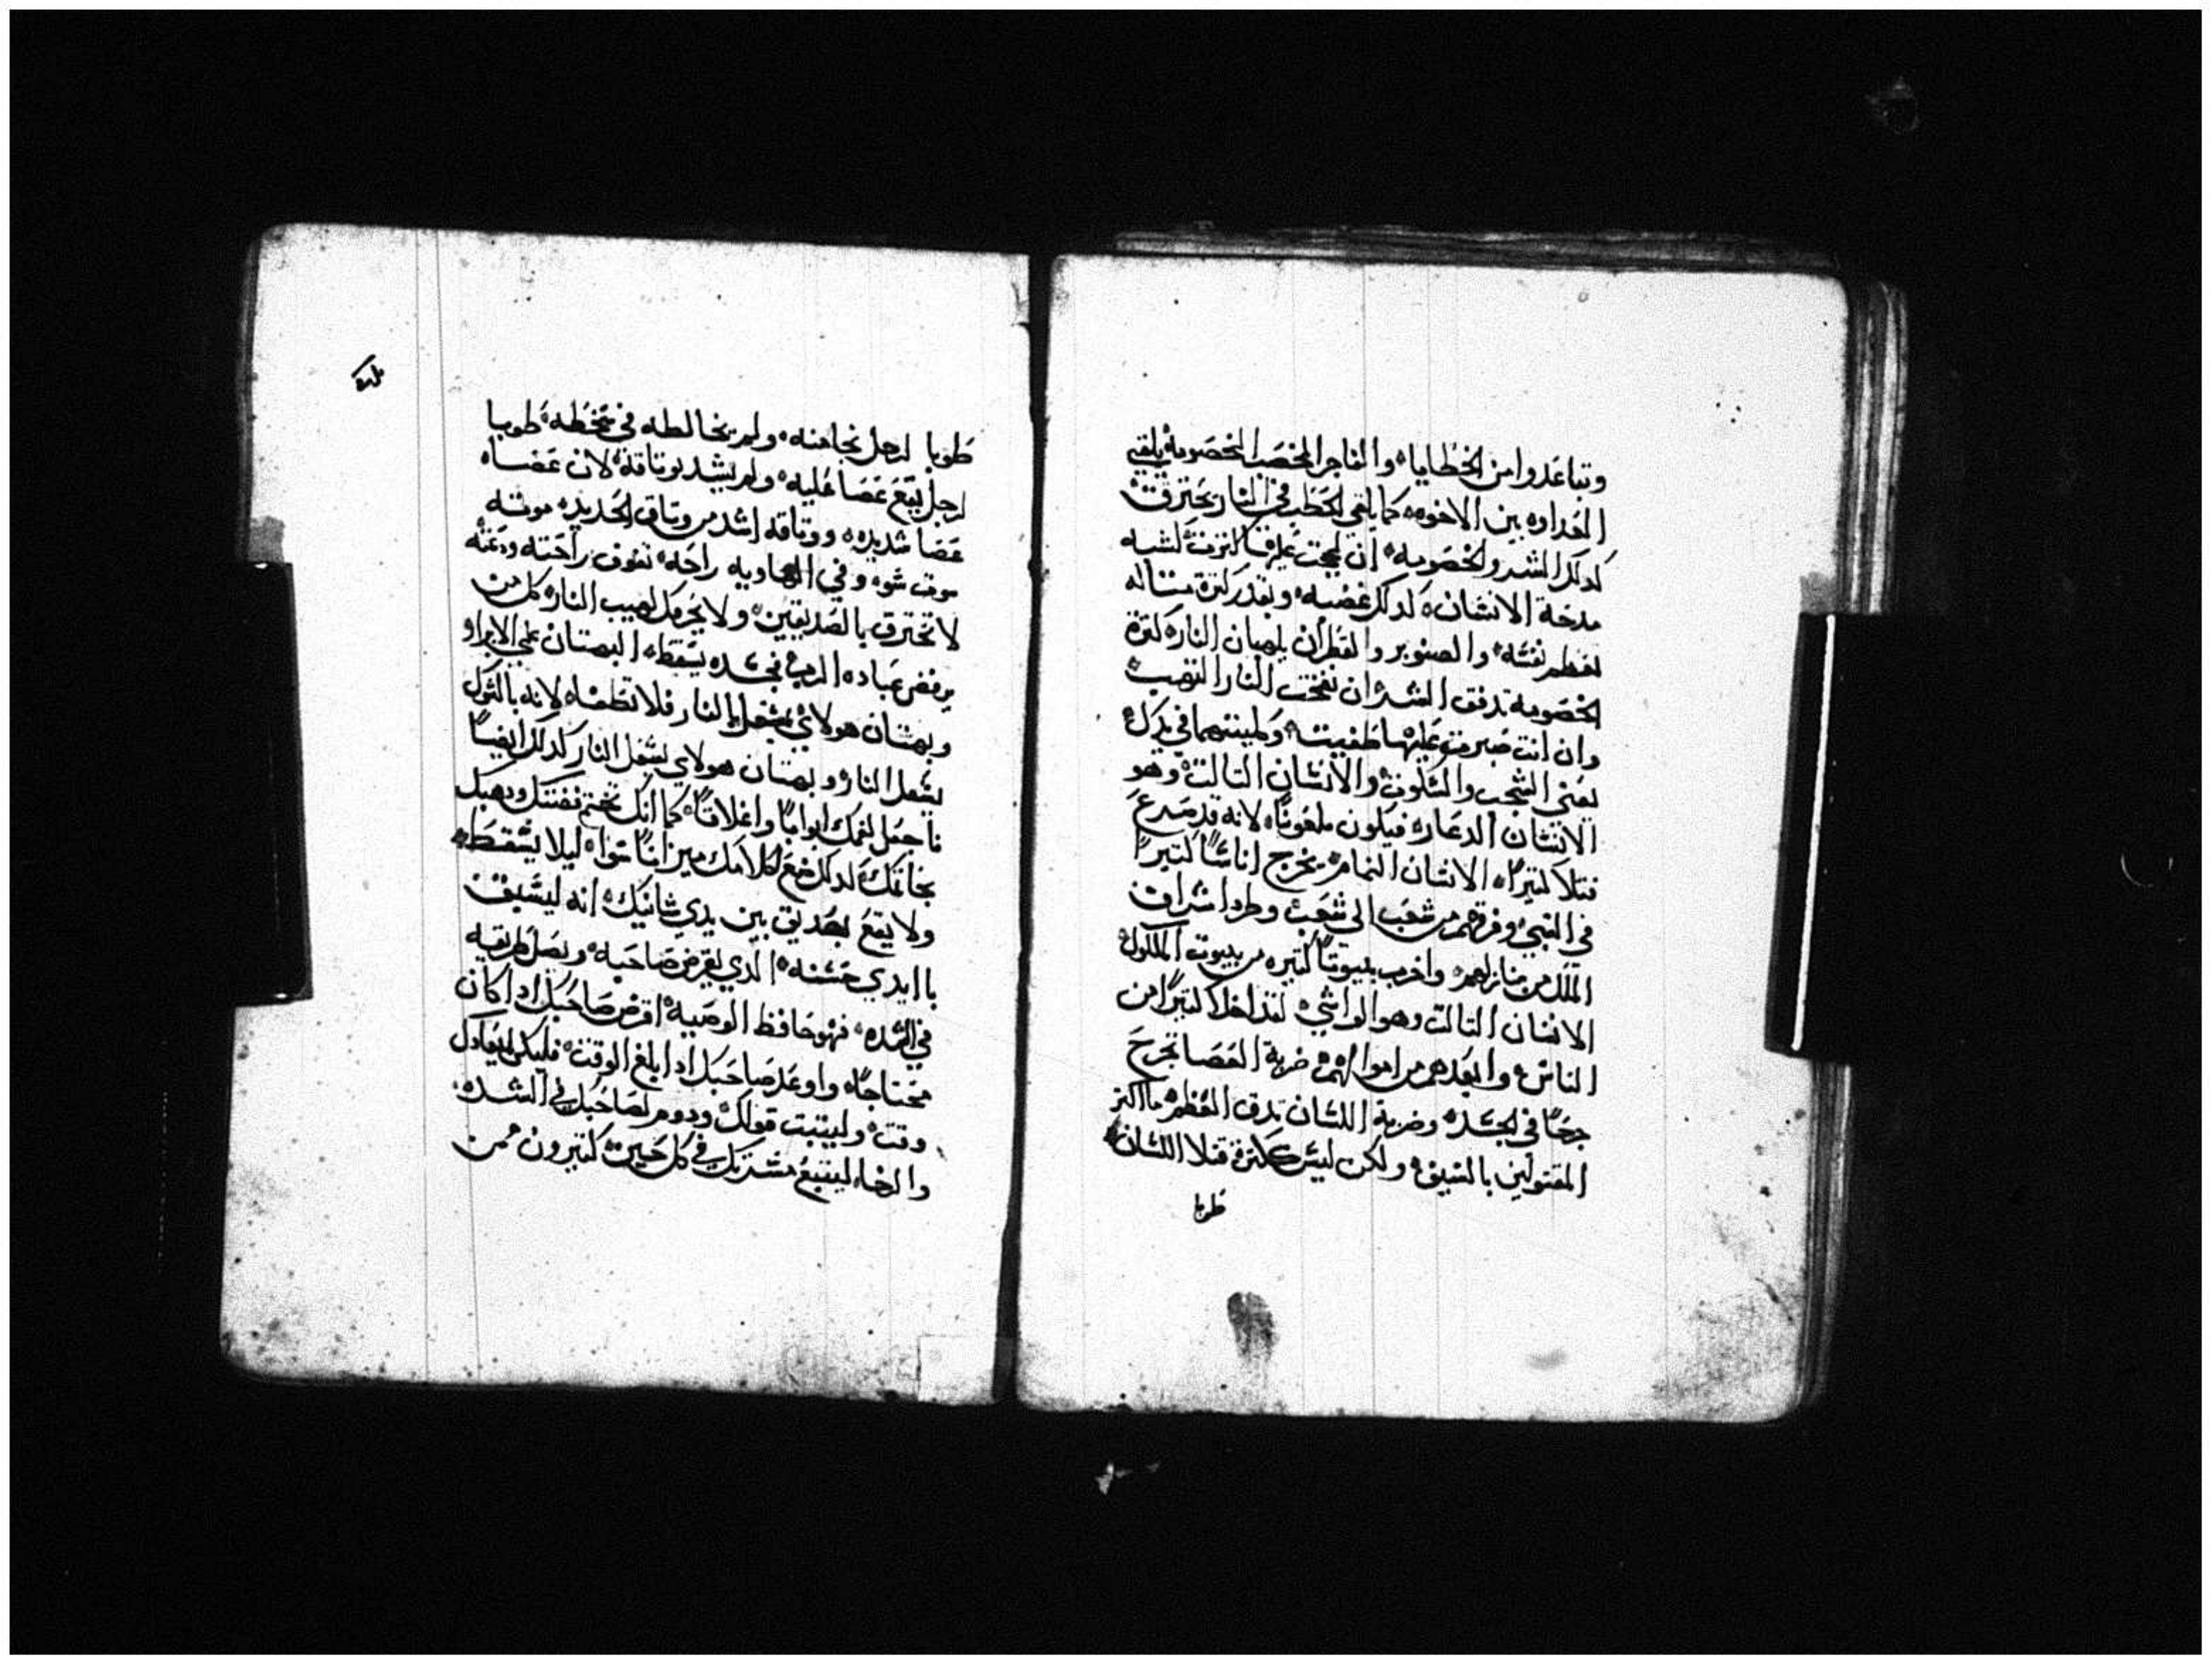 وتباعدوا من الخطايا، والفاجر المخصب الخصومه يلقي
العداوه بين الاخوه، كما يلقي الحطب في النار يحترق
كدلك الشر والخصومه، ان
مدحة الانسان، كدلك غضبه، وبقدر كترة
تعظم نفسه، والصنوبر والقطران يلهبان النار، كترة
الخصومه تدفق الشر ان نفخت النار التهبت
وان انت صبرت عليها طفيت، في
يعني الشجب والسكوت، والانسان التالت وهو
الانسان الدعار، فيكون ملعونًا، لانه قد صرع
قتلا كتيرًا، الانسان النمام، يخرج اناسًا كتيرًا
في السبي وفرقهم من شعب الى شعب، وطرد اشراف
الملك من منازلهم، واخرب بيوتًا كتيره من بيوت الملوك
الانسان التالت وهو الواشي، لقد اهلك كتيرًا من
الناس، وابعدهم من اموالهم، ضربة العصا تجرح
جرحًا في الجسد، وضربة اللسان تدق العظم، ما اكتر
المقتولين بالسيف، ولكن ليس ككترة قتلا اللسان
طوبا
طوبا لرجل نجا منه، ولم يخالطه في سخطه، طوبا
لرجل يقع عصا عليه، ولم يشد بوتاقه، لان عصاه
عصا شديده، ووتاقه اشد من وتاق الحديد، موته
موت سوء، وفي الهاويه راحه، تفوق راحته ودعته
لا تحترق بالصديقين، ولا يحرمك لهيب النار، كل من
يرفض عباده الرب يسقط، البهتان علي الابرار
وبهتان هولاي يشعل النار فلا تطفاه لانه بالتوكل
يشعل النار وبهتان هولاي يشعل النار كدلك ايضًا
فاجعل لفمك ابوابًا واغلاقًا، كما انك تختم فضتك ودهبك
بخاتمك، كدلك ضع لكلامك ميزانًا سوا، ليلا يسقط
ولا يقع بصديق بين يدي شانيك، انه ليسبق
با ايدي حسنه، الدي يقرض صاحبه، ويصل طريقه
في الشده، فهو حافظ الوصيه، اقرض صاحبك ادا كان
محتاجًا، واوعد صاحبك ادا بلغ الوقت، فليكن
وقت، وليتبت قولك، ودوم لصاحبك في الشده،
والرخا، ليتبع مسرتك في كل حين، كتيرون ممن